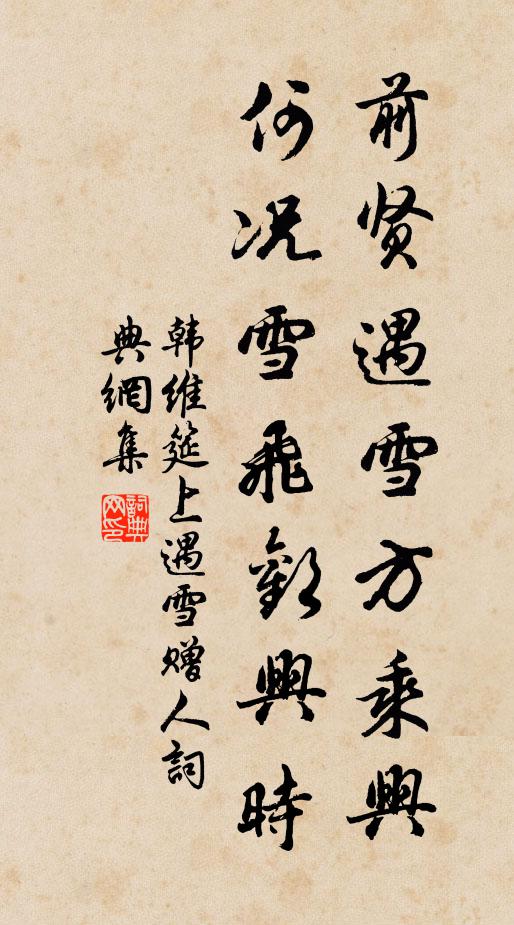 前贤遇雪方乘興
何况雪飛歡興時
韩維筵上遇雪赠人詞
典網集
詞典网印